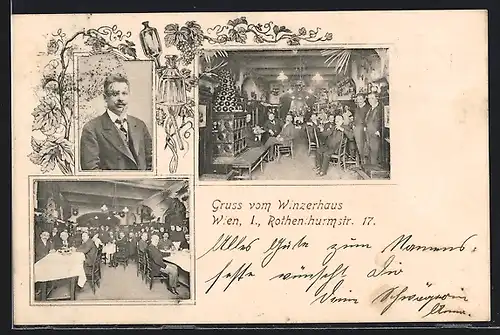 Gruss vom Winzerhaus
Wien, I., Rothenthurmstr. 17.
Alles Gute zum Namens-
feste wünscht Dir
Deine Schwägerin
Anna.